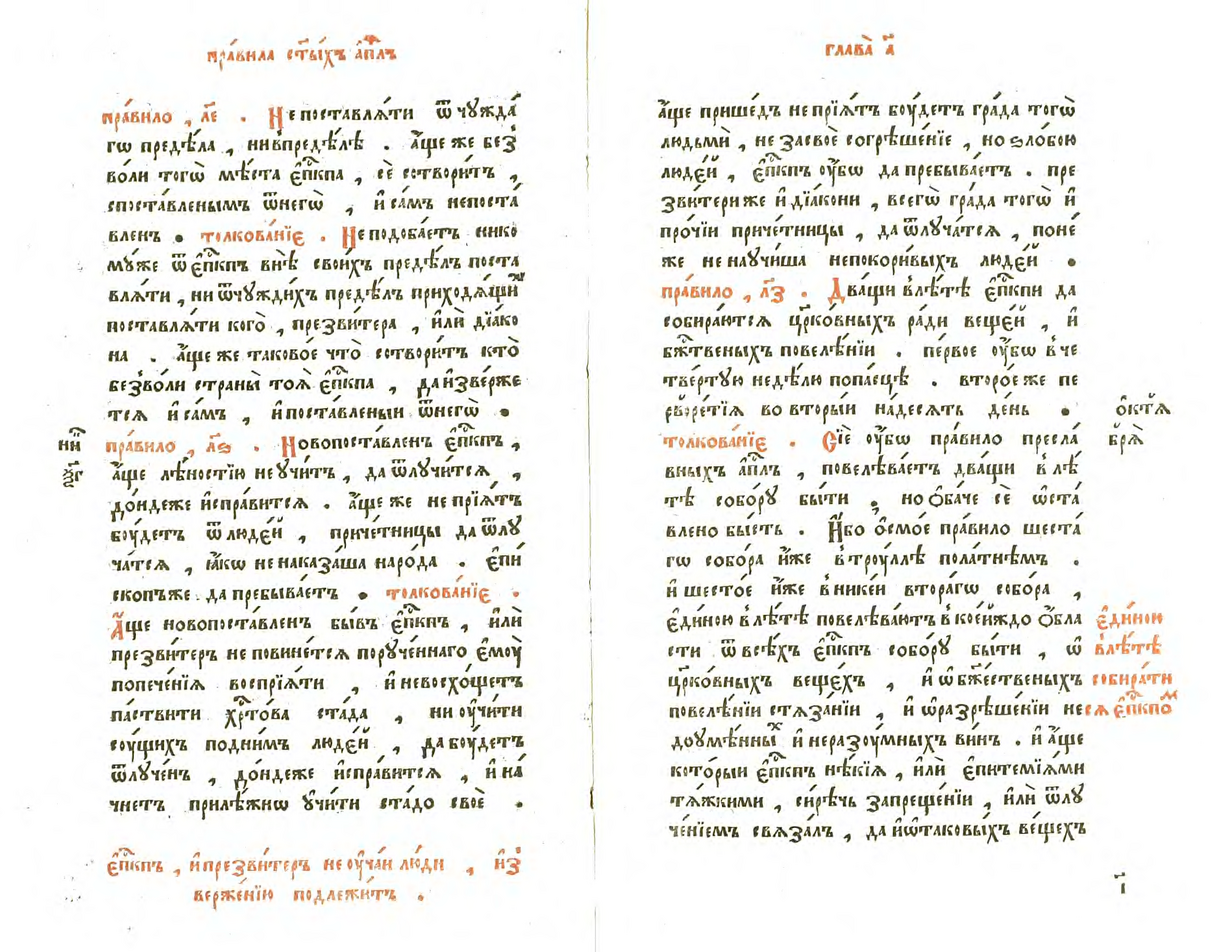 пра́вила ст҃ы́хъ а҆п҃лъ
пра́вило , л҃е . Не поставлѧ́ти ѿ чужда́
гѡ предѣ́ла , нивпредѣ́лѣ . а҆́ще же без̾
во́ли тогѡ̀ мѣ́ста є҆п҃кпа , сѐ сотвори́тъ ,
споста́вленымъ ѿнегѡ̀ , и҆ са́мъ непоста́
вленъ . толкова́нїе . Не подоба́етъ нико
му́же ѿ є҆п҃кпъ внѣ̀ свои́хъ предѣ́лъ поста
влѧ́ти , ни ѿчужди́хъ предѣ́лъ приходѧ́щиⷯ
поставлѧ́ти кого̀ , презви́тера , и҆лѝ дїа́ко
на . а҆́ще же таково́е что̀ сотвори́тъ кто̀
без̾во́ли страны̀ тоѧ̀ є҆п҃кпа , да и҆зве́рже
тсѧ и҆ са́мъ , и҆ поста́вленыи ѿнегѡ̀ .
пра́вило , л҃ѕ . Новопоста́вленъ є҆п҃кпъ ,
а҆́ще лѣ́ностїю не у҆чи́тъ , да ѿлучи́тсѧ ,
до́ндеже и҆спра́витсѧ . а҆́ще же не прїѧ́тъ
бꙋ́детъ ѿ люде́й , приче́тницы да ѿлу
ча́тсѧ , ꙗ҆́кѡ не наказа́ша наро́да . є҆пи́
скопъже да пребыва́етъ . толкова́нїе .
А҆́ще новопоста́вленъ бы́въ є҆п҃кпъ , и҆лѝ
презви́теръ не повине́тсѧ поруче́ннаго є҆мꙋ̀
попече́нїѧ воспрїѧ́ти , и҆ невосхо́щетъ
па́ствити хр҃то́ва ста́да , ни оу҆чи́ти
сꙋ́щихъ подни́мъ люде́й , да бꙋ́детъ
ѿлуче́нъ , до́ндеже и҆спра́витсѧ , и҆ на́
чнетъ прилѣ́жнѡ у҆чи́ти ста́до своѐ .
є҆п҃кпъ , и҆ презви́теръ не оу҆ча́и лю́ди , и҆з̾
верже́нїю подлежи́тъ .
глава̀ а҃
а҆́ще прише́дъ не прїѧ́тъ бꙋ́детъ гра́да тогѡ̀
людьмѝ , не засвоѐ согрѣше́нїе , но ѕло́бою
люде́й , є҆п҃кпъ оу҆́бѡ да пребыва́етъ . пре
зви́териже и҆ дїа́кони , всегѡ̀ гра́да тогѡ̀ и҆
про́чїи приче́тницы , да ѿлуча́тсѧ , поне́
же не научи́ша непокори́выхъ люде́й .
пра́вило , л҃з . Два́щи в̾лѣ́тѣ є҆п҃кпи да
собира́ютсѧ цр҃ко́вныхъ ра́ди веще́й , и҆
бж҃твеныхъ повелѣ́нїи . пе́рвое оу҆́бѡ в̾че
тве́ртую недѣ́лю попа́сцѣ . второ́е же пе
рворе́тїѧ во вто́рыи на́десѧть де́нь .
толкова́нїе . Сїѐ оу҆́бѡ пра́вило пресла́
вныхъ а҆п҃лъ , повелѣва́етъ два́щи в̾ лѣ́
тѣ собо́ру бы́ти , но ѻ҆ба́че сѐ ѡ҆ста́
влено бы́сть . И҆́бо ѻ҆смо́е пра́вило шеста́
гѡ собо́ра и҆́же в̾трꙋ́ллѣ пола́тнѣмъ .
и҆ шесто́е и҆́же в̾нике́и вторáгѡ собо́ра ,
є҆ди́ною в̾лѣ́тѣ повелѣва́ютъ в̾кое́йждо ѻ҆́бла
сти ѿ всѣ́хъ є҆п҃кпъ собо́ру бы́ти , ѡ҆
цр҃ко́вныхъ веще́хъ , и҆ ѡ҆ бж҃е́ственыхъ
повелѣ́нїи стѧза́нїи , и҆ ѡ҆разрѣше́нїи не
доумѣ́нныⷯ и҆ неразꙋ́мныхъ ви́нъ . и҆ а҆́ще
кото́рыи є҆п҃кпъ нѣ́кїѧ , и҆лѝ є҆питемїѧ́ми
тѧ́жкими , си́рѣчь запреще́нїи , и҆лѝ ѿлу
че́нїемъ свѧза́лъ , да и҆ѡ҆таковы́хъ ве́щехъ
ѻ҆ктѧ
брѧ̀
є҆ди́ною
в̾лѣ́тѣ
собира́ти
сѧ є҆п҃кпоⷨ
і҃